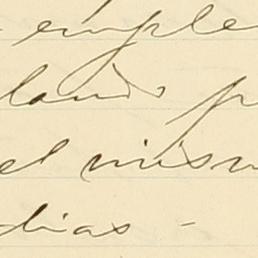 emple
land p
el mism
dias -